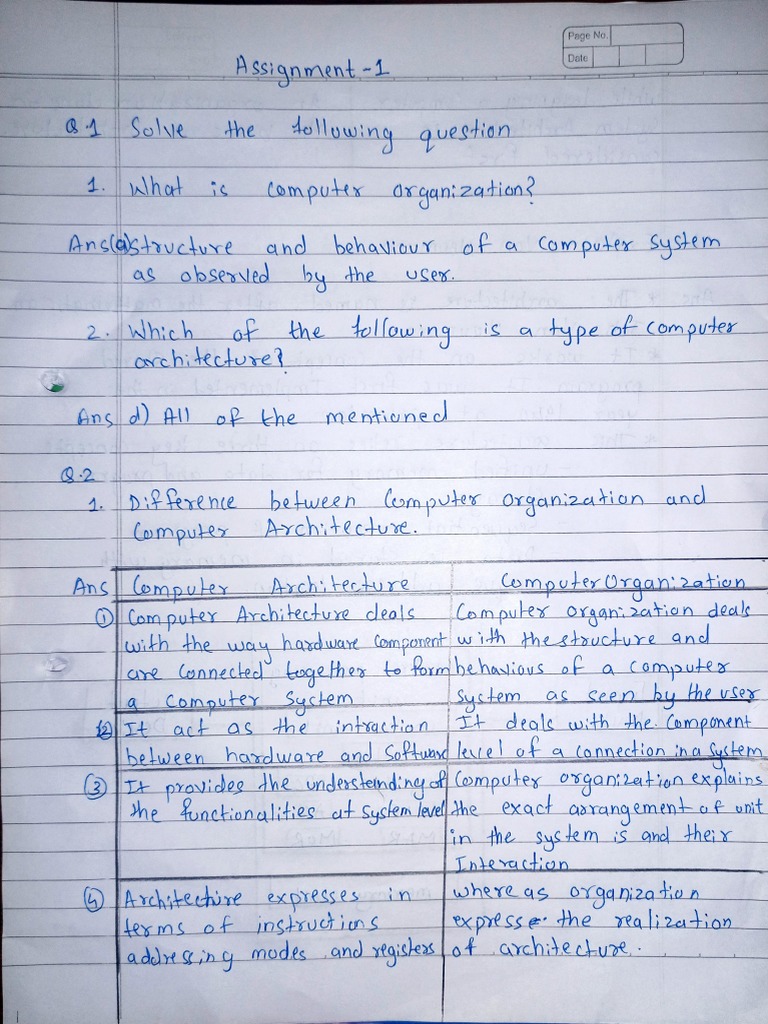 Page No.
Date
Assignment-1
Q.1 Solve the following question
1. What is computer organization?
Ans (a) Structure and behaviour of a computer system
as observed by the user.
2. Which of the following is a type of computer
architecture?
Ans d) All of the mentioned
Q.2
1. Difference between Computer organization and
Computer Architecture.
Ans Computer Architecture Computer Organization
① Computer Architecture deals Computer organization deals
with the way hardware component with the structure and
are connected together to form behavious of a computer
a computer system system as seen by the user
② It act as the intraction It deals with the component
between hardware and Software level of a connection in a system
③ It provides the understanding of Computer organization explains
the functionalities at system level the exact arrangement of unit
in the system is and their
Interaction
④ Architechire expresses in where as organization
terms of instructions express the realization
addressing modes and registers of architecture.